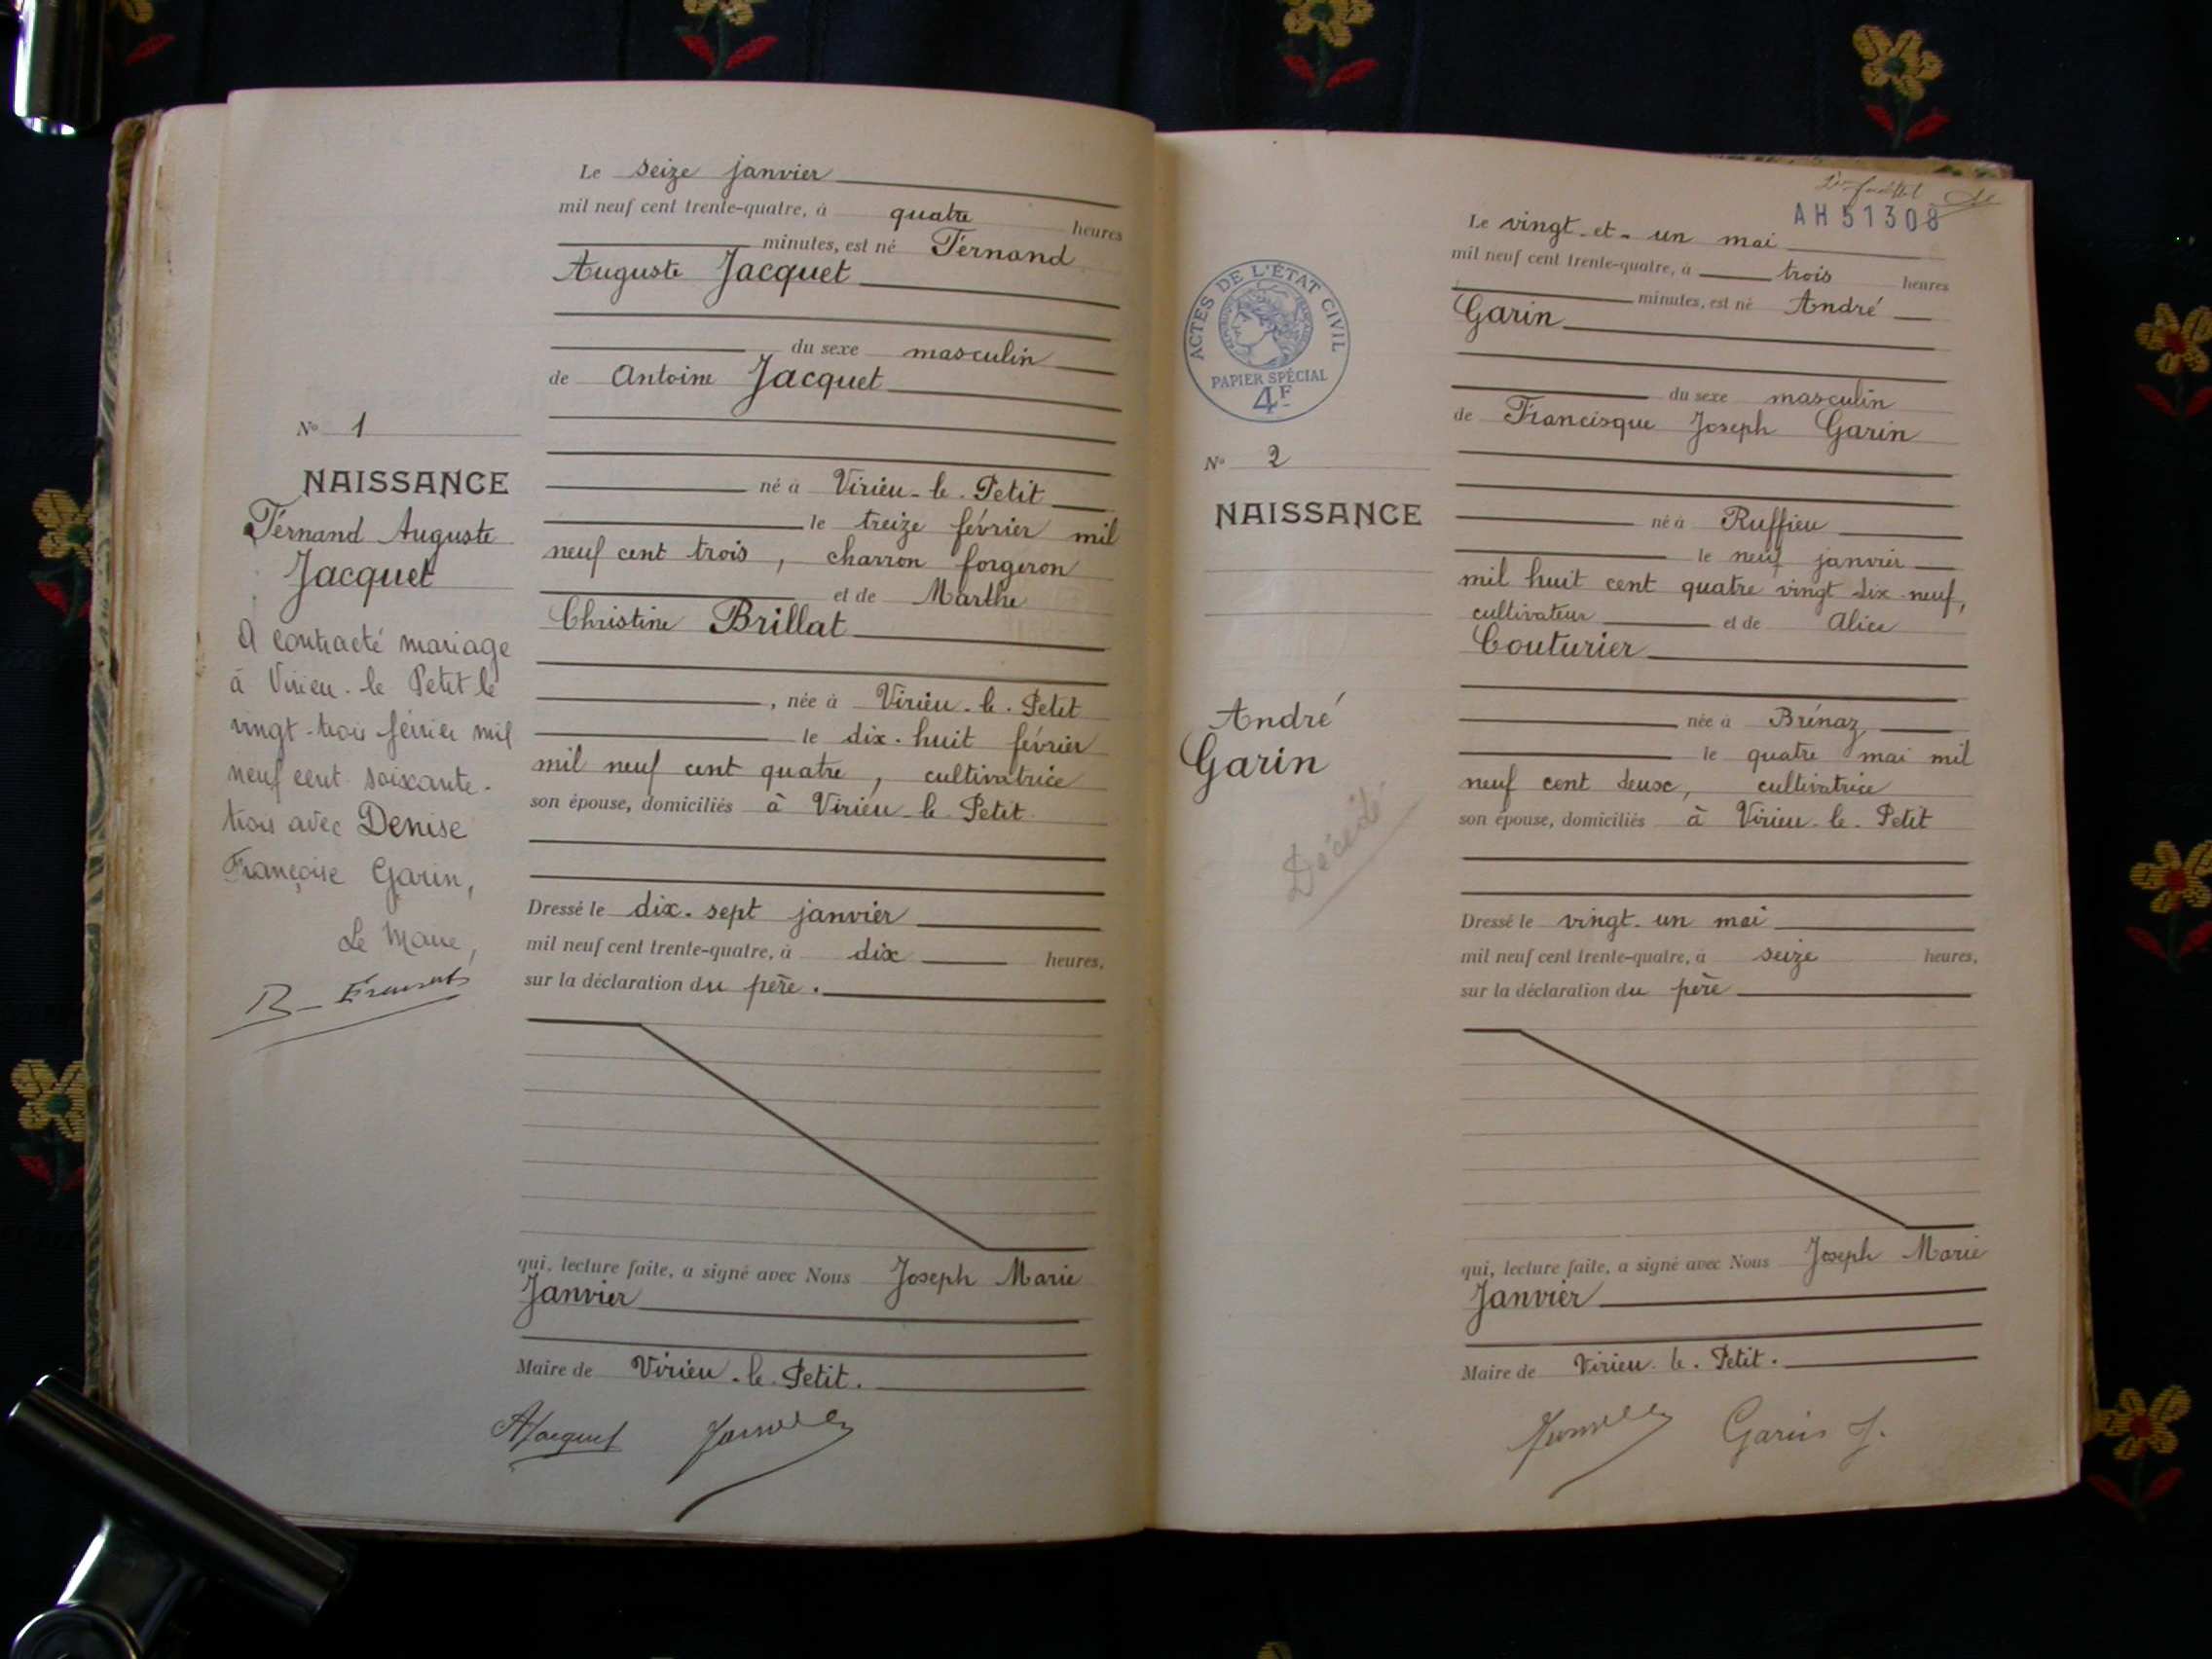 Le seize janvier
mil neuf cent trente-quatre, à quatre heures
minutes, est né Fernand
Auguste Jacquet
du sexe masculin
de Antoine Jacquet
né à Virieu-le-Petit
le treize février mil
neuf cent trois, charron forgeron
et de Marthe
Christine Brillat
, née à Virieu-le-Petit
le dix-huit février
mil neuf cent quatre, cultivatrice
son épouse, domiciliés à Virieu-le-Petit
Dressé le dix-sept janvier
mil neuf cent trente-quatre, à dix heures,
sur la déclaration du père.
qui, lecture faite, a signé avec Nous Joseph Marie
Janvier
Maire de Virieu-le-Petit.
AJacquet Janvier
No 1
NAISSANCE
Fernand Auguste
Jacquet
A contracté mariage
à Virieu-le Petit le
vingt-trois février mil
neuf cent soixante-
trois avec Denise
Françoise Garin,
Le Maire,
AH 51308
Le vingt-et-un mai
mil neuf cent trente-quatre, à trois heures
minutes, est né André
Garin
du sexe masculin
de Francisque Joseph Garin
né à Ruffieu
le neuf janvier
mil huit cent quatre vingt dix-neuf,
cultivateur et de Alice
Couturier
née à Brénaz
le quatre mai mil
neuf cent deux, cultivatrice
son épouse, domiciliés à Virieu-le-Petit
Dressé le vingt-un mai
mil neuf cent trente-quatre, à seize heures,
sur la déclaration du père
qui, lecture faite, a signé avec Nous Joseph Marie
Janvier
Maire de Virieu-le-Petit.
Janvier Garin J.
ACTES DE L'ÉTAT CIVIL
RÉPUBLIQUE FRANÇAISE
PAPIER SPÉCIAL
4F
No 2
NAISSANCE
André
Garin
Décédé